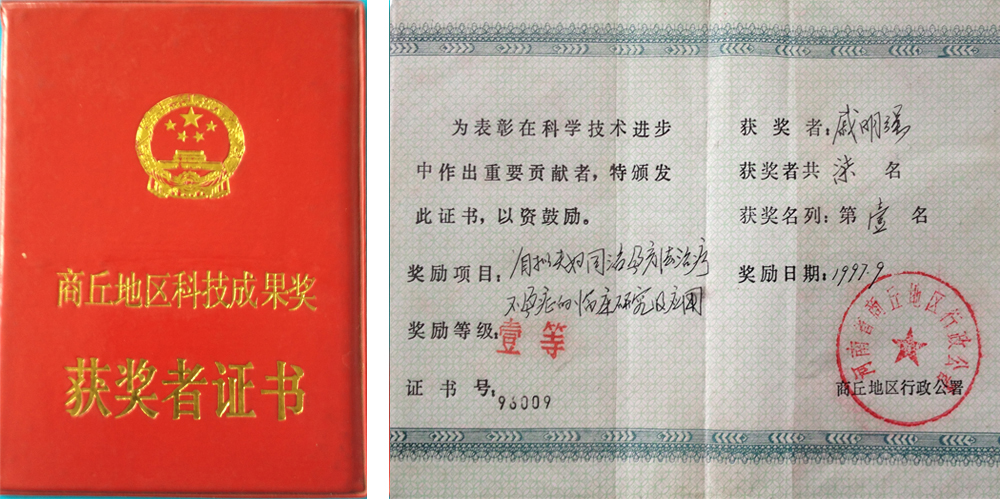 商丘地区科技成果奖
获奖者证书
为表彰在科学技术进步
中作出重要贡献者，特颁发
此证书，以资鼓励。
奖励项目：自拟夫妇同治孕育法治疗
不孕症的临床研究及应用
奖励等级：壹等
证书号：96009
获奖者：戚明强
获奖者共 柒 名
获奖名列：第 壹 名
奖励日期：1997.9
河南省商丘地区行政公署
商丘地区行政公署